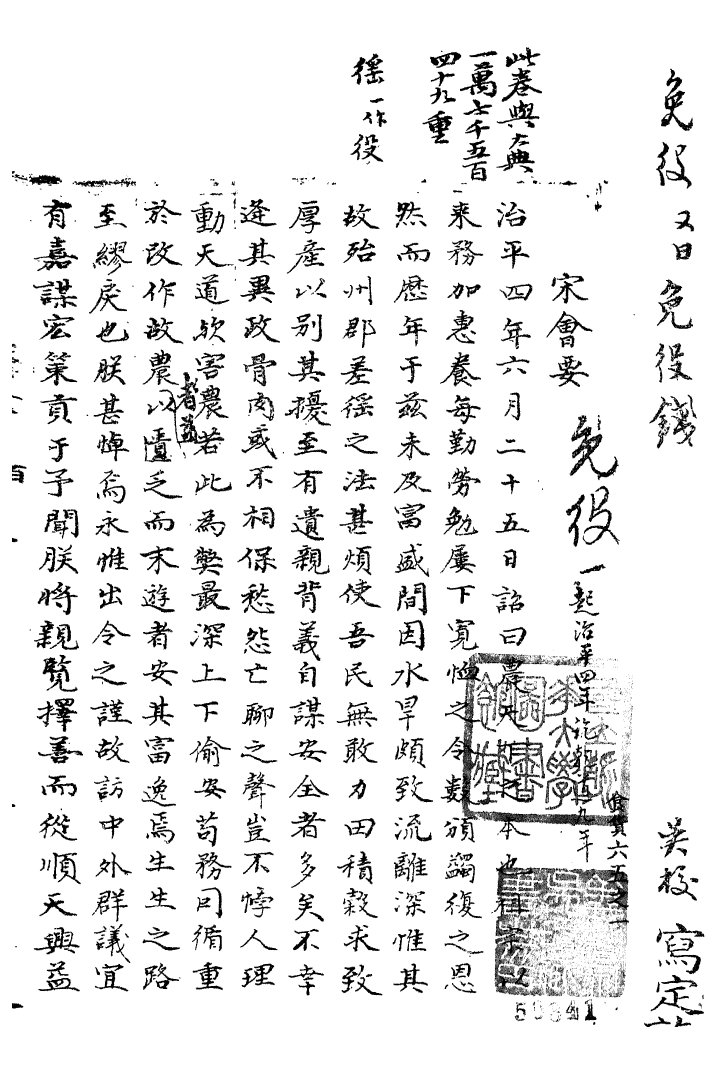 免役 又曰 免役錢
吳校 寫定
此卷與大典
一萬七千五百
四十九重
徭一作役
宋會要
免役 一起治平四年訖熙寧九年
食貨六五之一
治平四年六月二十五日詔曰農天下之本也祖宗以
來務加惠養每勤勞勉屢下寬恤之令數頒蠲復之恩
然而歷年于茲未及富盛間因水旱頗致流離深惟其
故殆州郡差徭之法甚煩使吾民無敢力田積穀求致
厚產以別其擾至有遺親背義自謀安全者多矣不幸
逢其異政骨肉或不相保愁怨亡聊之聲豈不悖人理
動天道歟害農若此為弊最深上下偷安苟務因循重
者益
於改作故農以匱乏而末遊者安其富逸焉生生之路
至繆戾也朕甚悼焉永惟出令之謹故訪中外群議宜
有嘉謀宏策貢于予聞朕將親覽擇善而從順天興益